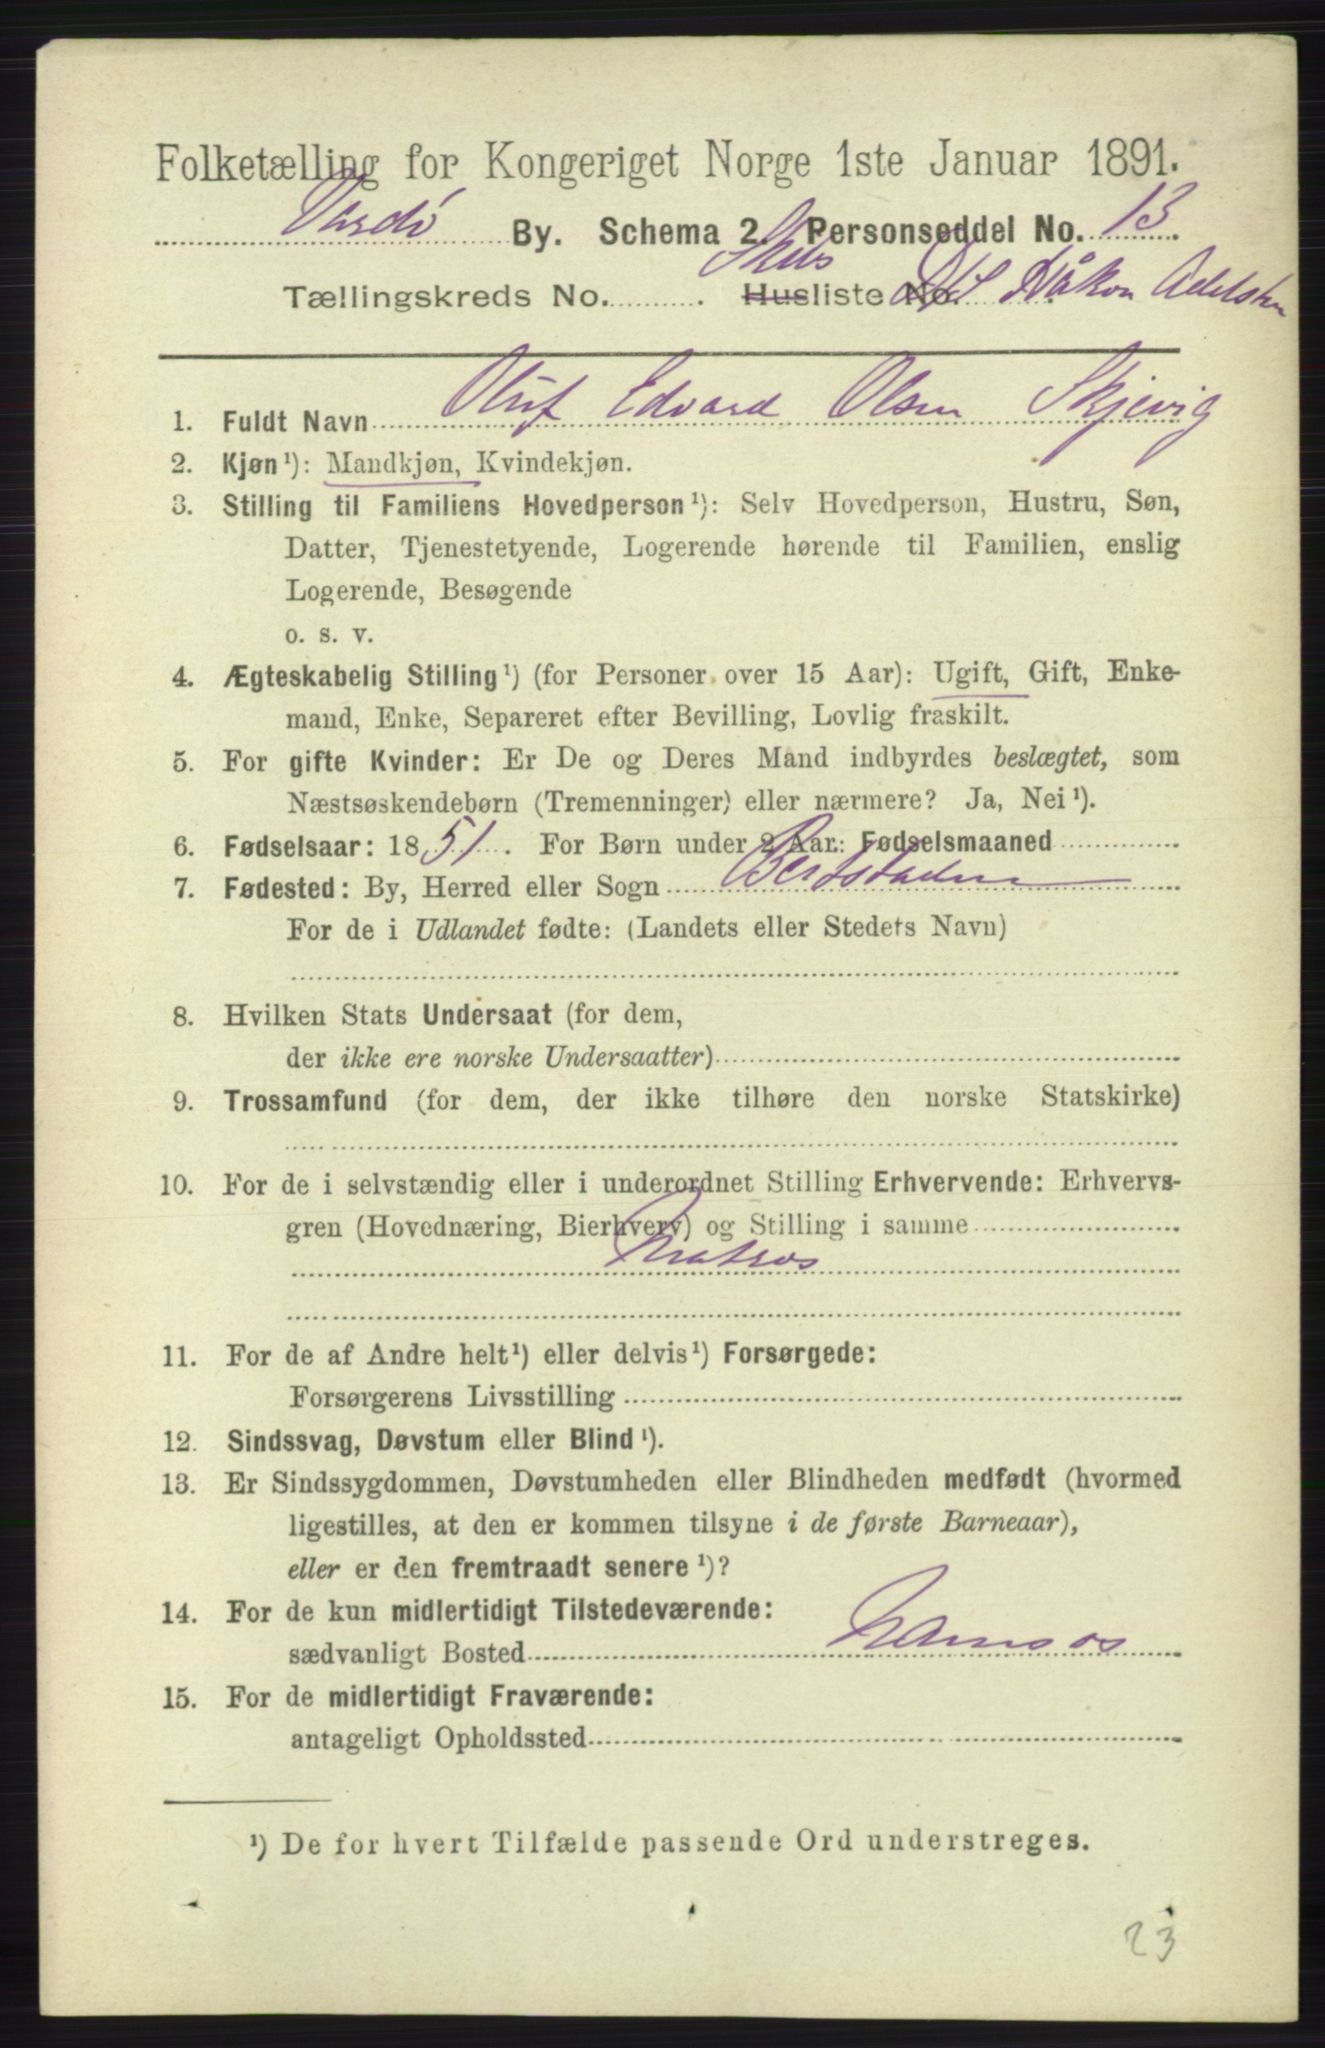 Folketælling for Kongeriget Norge 1ste Januar 1891.
Vardø By. Schema 2. Personseddel No. 13
Tællingskreds No. Skibsliste No. D/S Håkon Adelsten
1. Fuldt Navn Oluf Edvard Olsen Skjevig
2. Kjøn¹): Mandkjøn, Kvindekjøn.
3. Stilling til Familiens Hovedperson¹): Selv Hovedperson, Hustru, Søn,
Datter, Tjenestetyende, Logerende hørende til Familien, enslig
Logerende, Besøgende
o. s. v.
4. Ægteskabelig Stilling¹) (for Personer over 15 Aar): Ugift, Gift, Enke-
mand, Enke, Separeret efter Bevilling, Lovlig fraskilt.
5. For gifte Kvinder: Er De og Deres Mand indbyrdes beslægtet, som
Næstsøskendebørn (Tremenninger) eller nærmere? Ja, Nei¹).
6. Fødselsaar: 1851. For Børn under 2 Aar: Fødselsmaaned
7. Fødested: By, Herred eller Sogn
For de i Udlandet fødte: (Landets eller Stedets Navn)
8. Hvilken Stats Undersaat (for dem,
der ikke ere norske Undersaatter)
9. Trossamfund (for dem, der ikke tilhøre den norske Statskirke)
10. For de i selvstændig eller i underordnet Stilling Erhvervende: Erhvervs-
gren (Hovednæring, Bierhverv) og Stilling i samme
Matros
11. For de af Andre helt¹) eller delvis¹) Forsørgede:
Forsørgerens Livsstilling
12. Sindssvag, Døvstum eller Blind¹).
13. Er Sindssygdommen, Døvstumheden eller Blindheden medfødt (hvormed
ligestilles, at den er kommen tilsyne i de første Barneaar),
eller er den fremtraadt senere¹)?
14. For de kun midlertidigt Tilstedeværende:
sædvanligt Bosted Namsos
15. For de midlertidigt Fraværende:
antageligt Opholdssted
¹) De for hvert Tilfælde passende Ord understreges.
23